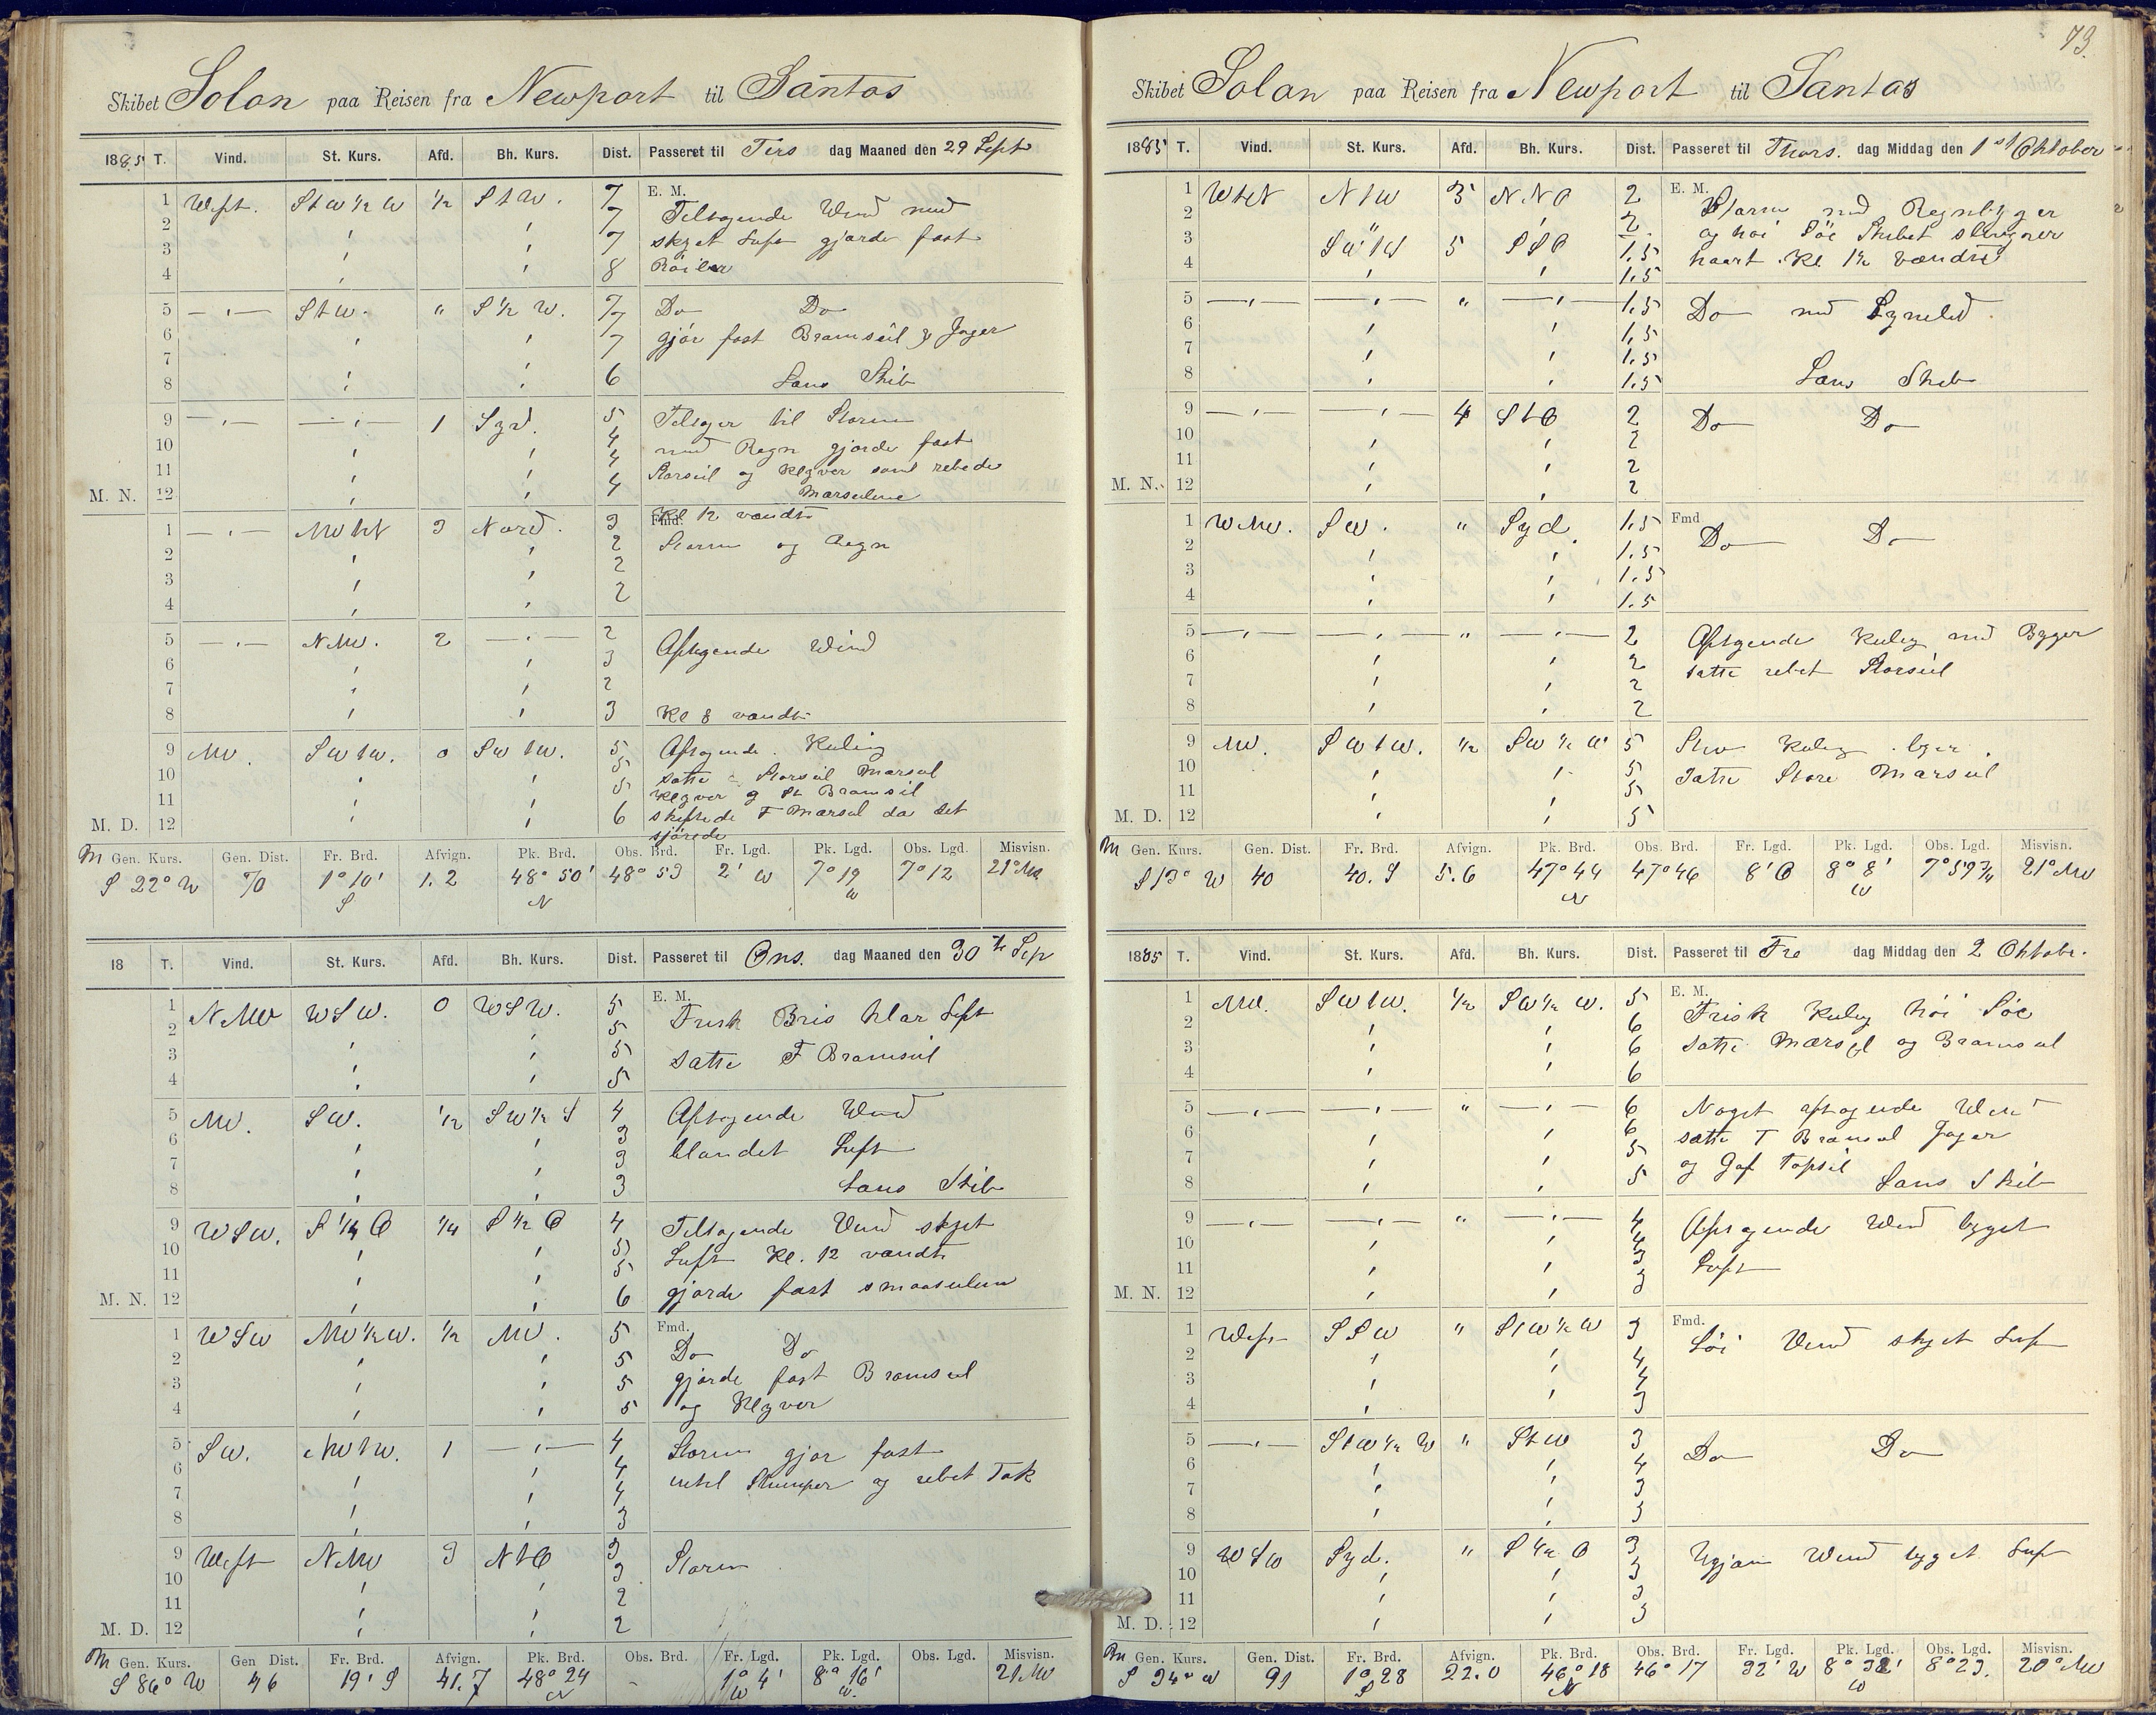 Skibet Solon paa Reisen fra Newport til Santos
1885 T. Vind. St. Kurs. Afd. Bh. Kurs. Dist. Passeret til Tirs dag Maaned den 29 Sept
E. M.
1 West. StW½W ½ StW. 7 Tiltagende Wind med
2 7 skyet Luft gjorde fast
3 7 Röiler
4 8
5 StW. " S½W. 7 Do Do
6 7 gjör fast Bramseil & Jager
7 7
8 6 Lans Skib
9 1 Syd. 5 Tiltager til Storm
10 4 med Regn gjorde fast
11 4 Storseil og Klyver samt rebede
M. N. 12 4 Merseilene
Fmd. Kl 12 vendte
1 NWtN 3 Nord. 3 Storm og Regn
2 2
3 2
4 2
5 NNW. 2 2 Aftagende Wind
6 3
7 2
8 3 Kl 8 vendte
9 NW. SWtW. 0 SWtW. 5 Aftagende Kuling
10 5 satte Storseil Marseil
11 5 Klyver og St Bramseil
M. D. 12 6 skiftede F Marseil da det
sjörede
M Gen. Kurs. Gen. Dist. Fr. Brd. Afvign. Pk. Brd. Obs. Brd. Fr. Lgd. Pk. Lgd. Obs. Lgd. Misvisn.
S 22° W 70 1° 10' S 1.2 48° 50' N 48° 53 2' W 7° 19 W 7° 12 21° NW
18 T. Vind. St. Kurs. Afd. Bh. Kurs. Dist. Passeret til Ons. dag Maaned den 30te Sep
E. M.
1 NNW WSW. 0 WSW. 5 Frisk Bris klar Luft
2 5
3 5 satte F Bramseil
4 5
5 NW. SW. ½ SW½S 4 Aftagende Wind
6 3 blandet Luft
7 3
8 3 Lans Skib
9 WSW. S¼O ¼ S½O 4 Tiltagende Wind skyet
10 5 Luft Kl. 12 vendte
11 5
M. N. 12 6 gjorde fast smaaseilene
Fmd.
1 WSW NW½W. ½ NW. 5 Do Do
2 5 gjorde fast Bramseil
3 5 og Klyver
4 5
5 SW. NWtW. 1 4 Storm gjör fast
6 4 indtil Stumper og rebet Tok
7 4
8 3
9 West NNW 3 NtO 3 Storm
10 3
11 2
M. D. 12 2
M Gen. Kurs. Gen Dist. Fr. Brd. Afvign. Pk. Brd. Obs. Brd. Fr. Lgd. Pk. Lgd. Obs. Lgd. Misvisn.
S 86° W 46 19' S 41.7 48° 24 N 1° 4' W 8° 16' W. 21 NW
73.
Skibet Solon paa Reisen fra Newport til Santos
1885 T. Vind. St. Kurs. Afd. Bh. Kurs. Dist. Passeret til Thors. dag Middag den 1st Oktober
E. M.
1 WtN NtW 3 NNO 2 Storm med Regnbyger
2 " 2 og höi Söe Skibet slingrer
3 SWtW 5 SSO 1.5 haart. Kl 1½ vendte
4 1.5
5 " 1.5 Do med Lynild.
6 1.5
7 1.5
8 1.5 Lans Skib
9 4 StO 2 Do Do
10 2
11 2
M. N. 12 2
Fmd
1 WNW. SW. " Syd. 1.5 Do Do
2 1.5
3 1.5
4 1.5
5 " 2 Aftagende Kuling med Byger
6 2 satte rebet Storseil
7 2
8 2
9 NW. SWtW. ½ SW½W 5 Stiv Kuling byer.
10 5 Satte Store Marseil
11 5
M. D. 12 5
M Gen. Kurs. Gen. Dist. Fr. Brd. Afvign. Pk. Brd. Obs. Brd. Fr. Lgd. Pk. Lgd. Obs. Lgd. Misvisn.
S 13° W 40 40. S 5.6 47° 44 N 47° 46 8' O 8° 8' W 7° 59¾ 21° NW
1885 T. Vind. St. Kurs. Afd. Bh. Kurs. Dist. Passeret til Fre dag Middag den 2 Oktobr.
E. M.
1 NW. SWtW. ½ SW½W. 5 Frisk Kuling höi Söe
2 6 satte Mersejl og Bramseil
3 6
4 6
5 " 6 Noget aftagende Wind
6 6 satte F Bramseil Jager
7 5 og Gaf Topseil
8 5 Lans Skib
9 " 4 Aftagende Wind byget
10 4 Luft
11 3
M. N. 12 3
Fmd.
1 West SSW " StW½W 3 Löi Wind skyet Luft
2 4
3 4
4 3
5 StW½W " StW 3 Do Do
6 4
7 3
8 3
9 WSW Syd. " S½O 3 Ugjævn Wind byget Luft
10 3
11 3
M. D. 12 3
M Gen. Kurs. Gen. Dist. Fr. Brd. Afvign. Pk. Brd. Obs. Brd. Fr. Lgd. Pk. Lgd. Obs. Lgd. Misvisn.
S 34° W 91 1° 28 S 22.0 46° 18 N 46° 17 32' W 8° 32' W 8° 23. 20° NW